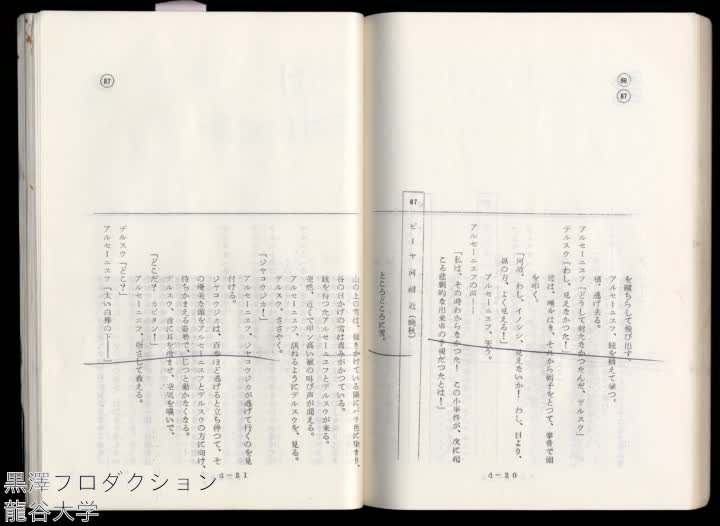 86
87
を蹴ちらして飛び出す
アルセーニエフ、銃を構えて撃つ。
猪、逃げ去る。
アルセーニエフ「どうして射たなかつたんだ、デルスウ」
デルスウ「わし、見えなかつた！」
彼は、唾をはき、それから帽子をとつて、拳骨で頭
を叩く。
「何故、わし、イノシシ、見えないか！　わし、目より、
鼻の方、よく見える！」
アルセーニエフ、笑う。
アルセーニエフの声――
「私は、その時わからなかつた！　この小事件が、次に起
こる悲劇的な出来事の予報だつたとは！」
87
ビーヤ河附近（晩秋）
ところどころに雪。
d-20
87
山の上の雪は、傾きかけている陽にバラ色に染まり、
谷の日かげの雪は青みがかつている。
銃を持つたアルセーニエフとデルスウが来る。
突然、近くで甲ン高い獣の叫び声が聞える。
アルセーニエフ、訊ねるようにデルスウを、見る。
デルスウ、ささやく。
「ジヤコウジカ！」
アルセーニエフ、ジヤコウジカが逃げて行くのを見
付ける。
ジヤコウジカは、百歩ほど逃げると立ち停つて、そ
の優美な頭をアルセーニエフとデルスウの方に向け、
待ちかまえる姿勢で、じつと動かなくなる。
デルスウ、音に耳を澄ませ、空気を嗅いで、
「どこだ？　カピタン！」
アルセーニエフ、指さして教える。
デルスウ「どこ？」
アルセーニエフ「太い白樺の下――
d-21
黒澤プロダクション
龍谷大学